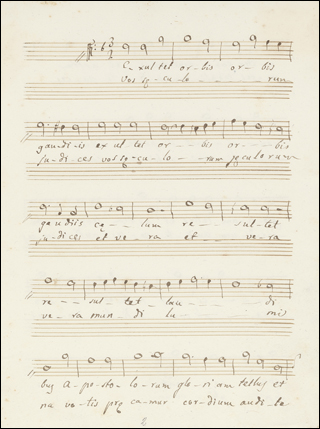 Exultet or-bis or- - bis
Vos sę-cu-lo - - - - - rum
gau-di-is ex ul tet or - - bis or - - bis
ju-di-ces vos sę-cu-lo - - rum sęculorum
gaudiis cę-lum re - - - sul-tet
ju-dices et ve-ra et - - - vera
re - - - sul-tet lau - - - di
ve-ra mun-di lu - - - mi
bus A-po-sto-lo-rum glo-riam tellus et
na vo-tis pre ca-mur cor-dium audi-te
2